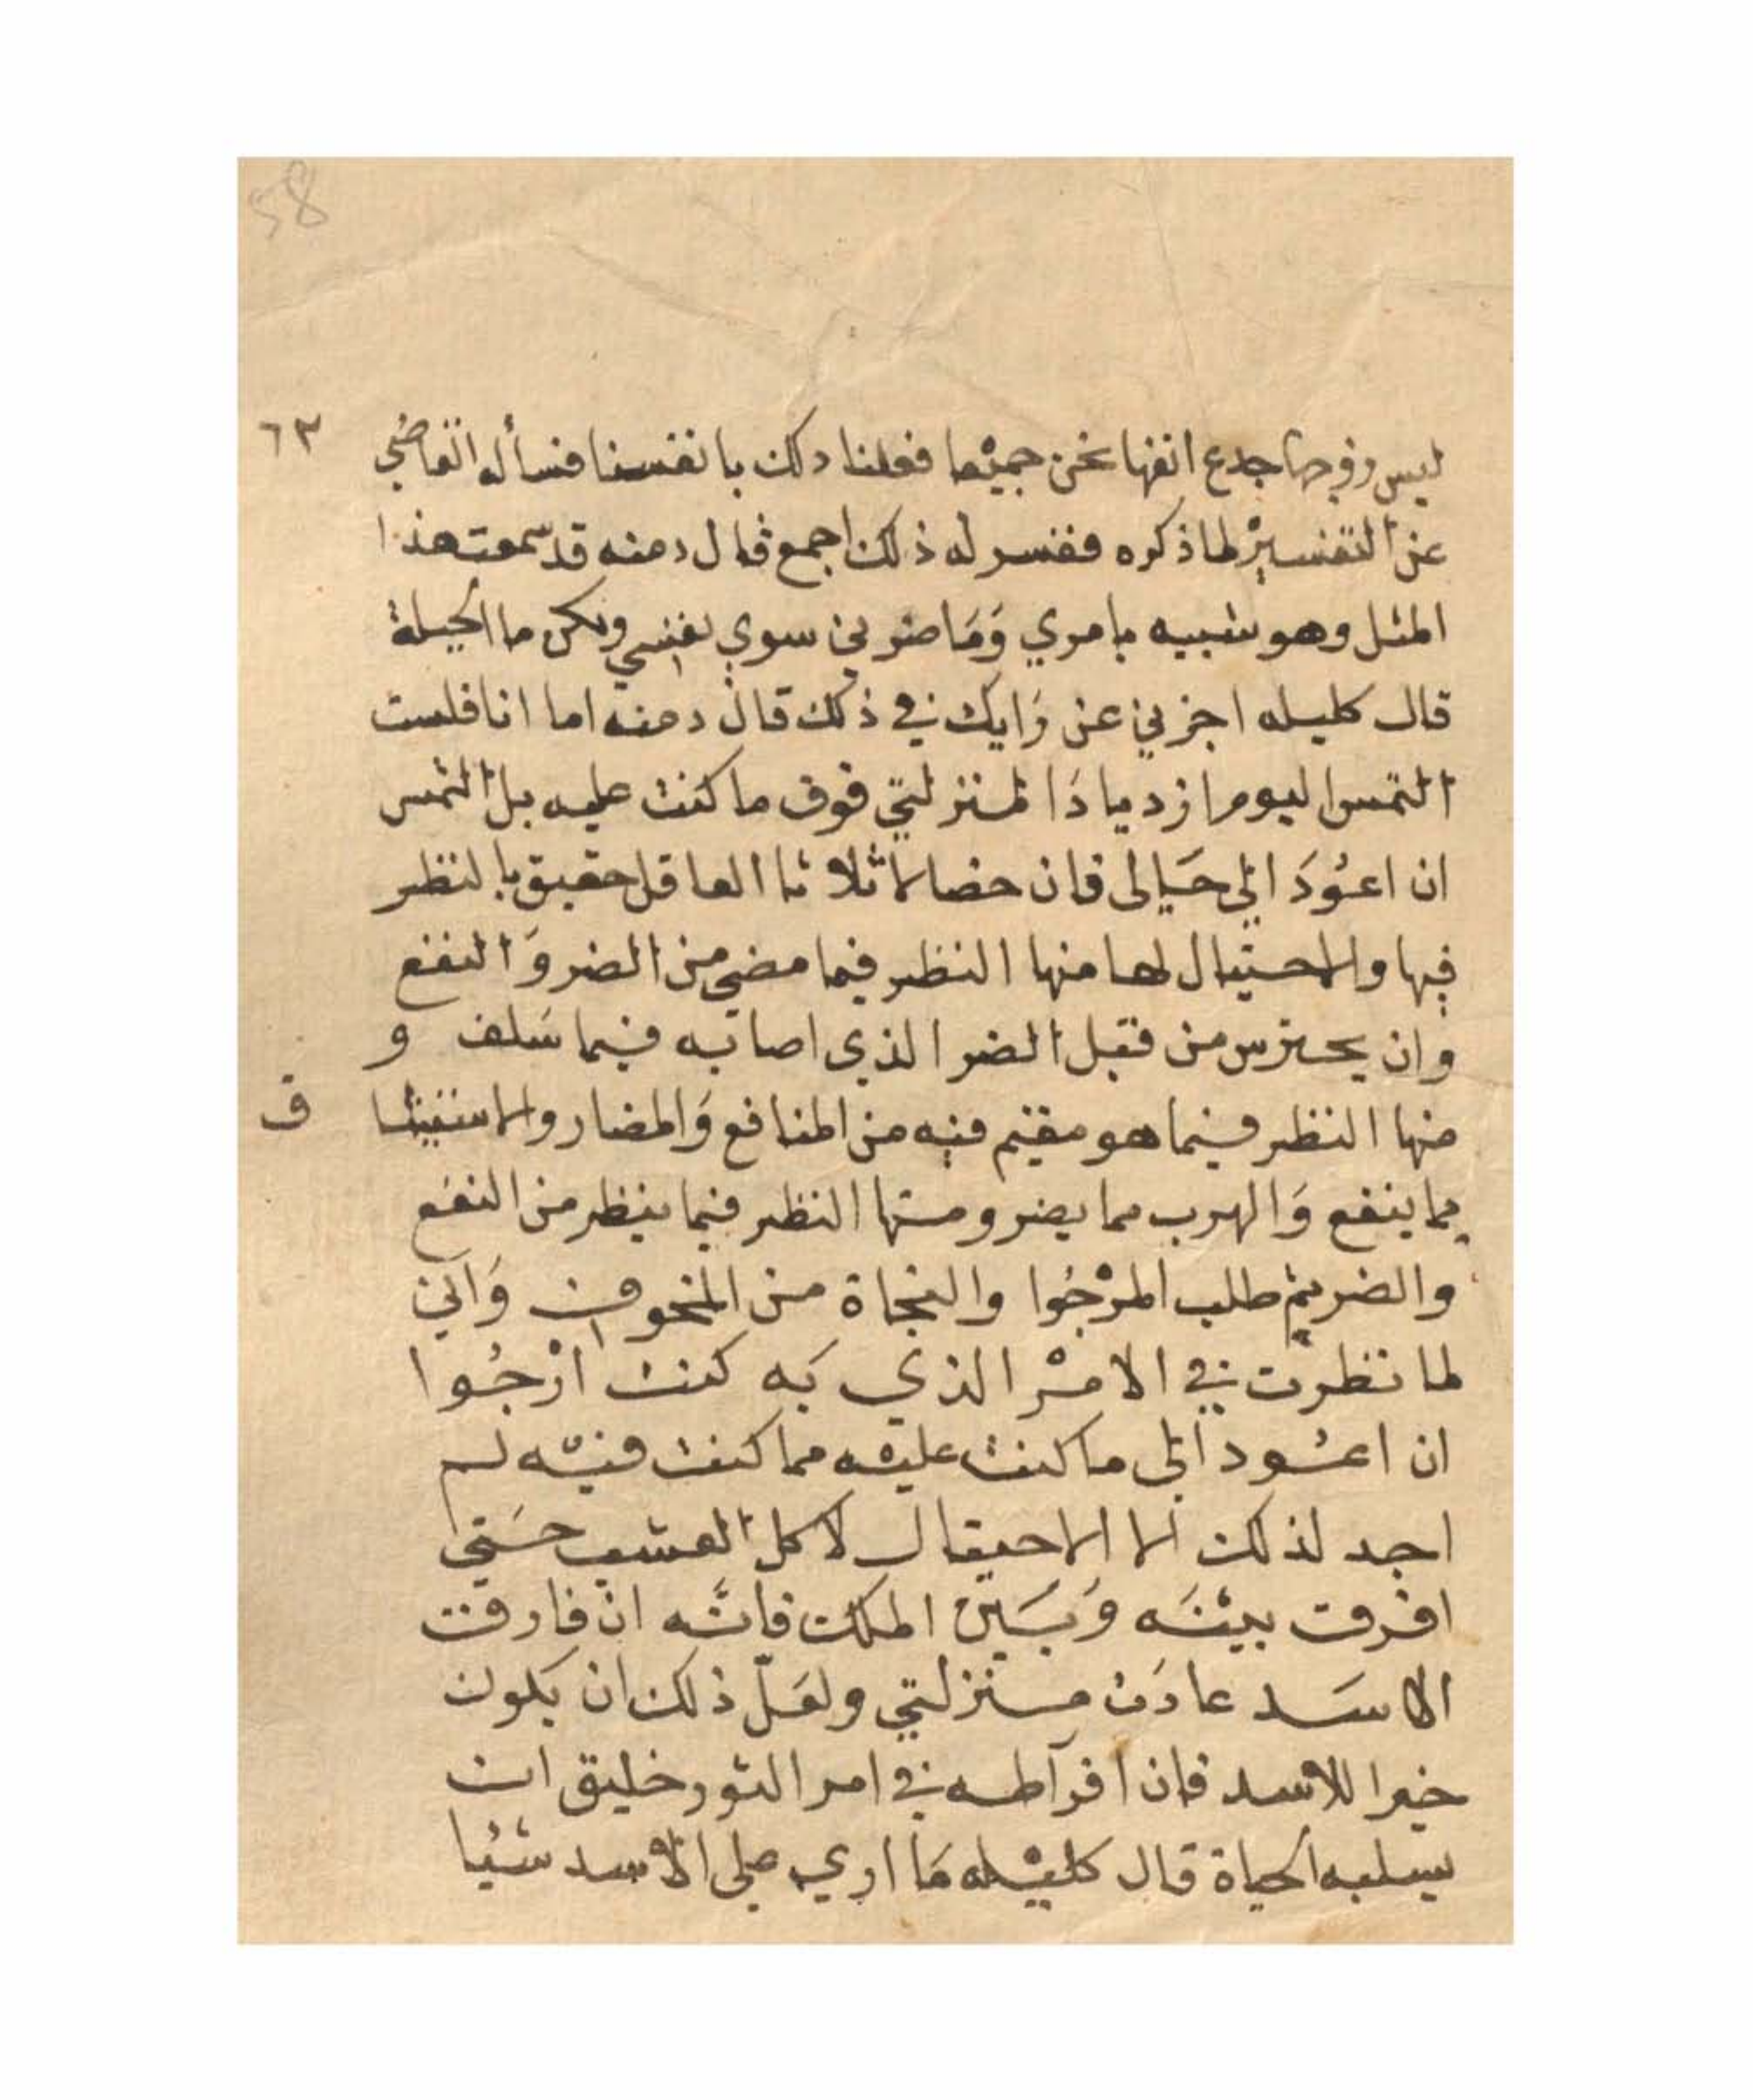 58
٦٣
ليس زوجها جدع انفها نحن جميْعا فعلنا دلك بانفسنا فسأله القاضي
عن التفسيْر لما ذكره ففسر له ذلك اجمع قال دمنه قد سمعت هذا
المثل وهو شبيه بامري وَمَا ضرني سوي نفسي ولكن ما الحيلة
قال كليله اخبرني عن رَايك في ذلك قال دمنه اما انا فلست
التمس اليوم ازديادَا لمنزلتي فوق ما كنت عليه بل التمس
ان اعوُدَ الي حَالى فان خصالا ثلاثا العاقل حقيق بالنظر
فيها والاحتيال لها منها النظر فيما مضي من الضر وَالنفع
وان يحترس من قبل الضر الذي اصابه فيما سَلف و
منها النظر فيما هو مقيم فيه من المنافع وَالمضار والاستيثا
ق
بما ينفع وَالهرب مما يضر ومنها النظر فيما ينظر من النفع
والضر ثم طلب المرْجُوا والنجاة من المخوف وَاني
لما نظرت في الامْر الذي به كنت ارْجُوا
ان اعُود الى ما كنت عليْه مما كنت فيْه لم
اجد لذلك الا الاحتيال لاكل العشب حَتي
افرق بيْنَه وَبَين الملك فانَّه ان فارقت
الاسَد عادَت منزلتي ولعَلّ ذلك ان يكون
خيرا للاسد فان افراطه في امر الثور خليق ان
يسلبه الحياة قال كليْله مَا اري علي الاسد شيُا